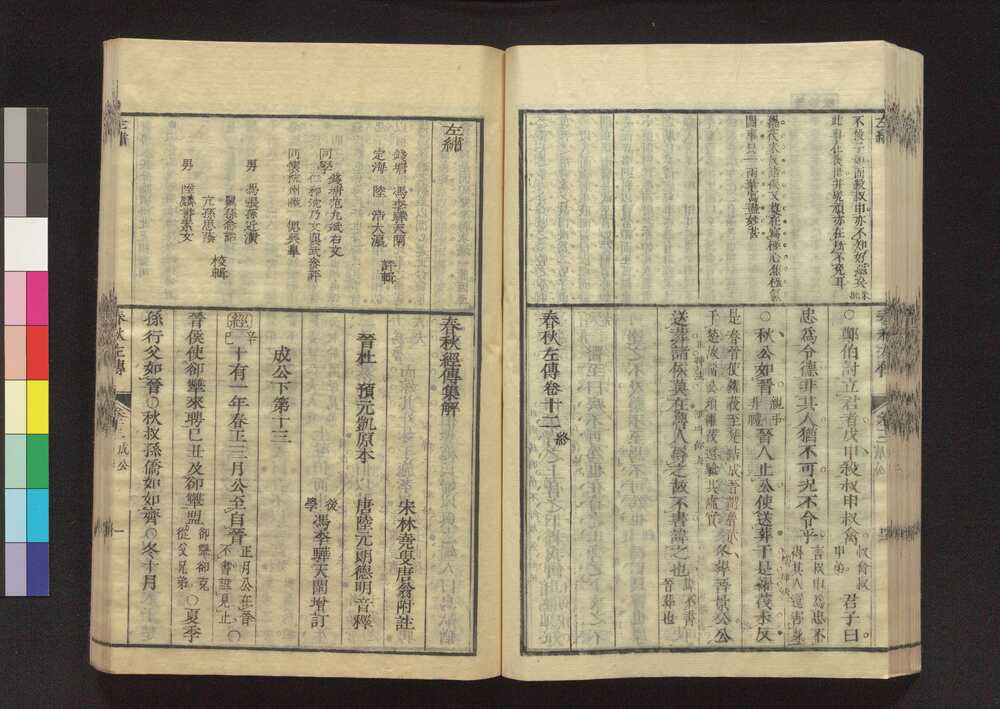 左繡
不教子如而殺叔申亦不知好惡矣
春秋左傳
○鄭伯討立君者戊申殺叔申叔禽
叔禽叔
申弟
君子曰
忠爲令德非其人猶不可況不令乎
言叔申爲忠不
得其人還害身
○秋公如晉
親弔
非禮
晉人止公使送葬于是糴茷未反
是春晉使糴茷至楚結成晉謂魯貳
于楚故留公須糴茷還驗其虛實
冬葬晉景公公
送葬諸侯莫在魯人辱之故不書諱之也
諱不書
晉葬也
春秋左傳卷十二終
左繡
錢塘 馮李驊天閑
定海 陸 浩大瀛
評輯
同學
錢塘范允斌右文
仁和沈乃文襄武參評
同懷
男 馮張孫近潢
男 陸麟書素文
校輯
春秋經傳集解
宋林堯叟唐翁附註
晉杜 預元凱原本
唐陸元朗德明音釋
後學馮李驊天閑增訂
成公下第十三
經
辛巳
十有一年春王三月公至自晉
正月公在晉
不書諱見止
○
晉侯使郤犨來聘己丑及郤犨盟
郤犨郤克
從父兄弟
○夏季
孫行父如晉○秋叔孫僑如如齊○冬十月
左繡
春秋左傳
成公
一